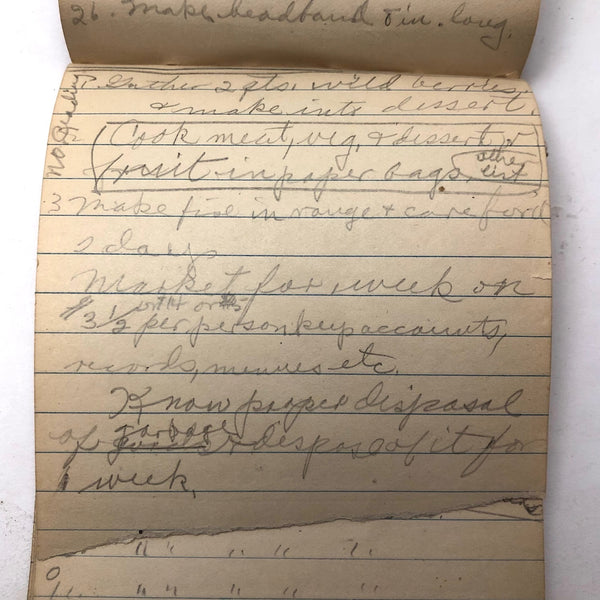 26. Make headband 8 in. long.
No Reading
1. Gather 2 qts. wild berries,
& make into dessert.
2 Cook meat, veg, & dessert or
fruit in paper bags. other list
3 Make fire in range & care for it
5 days
Market for week on
$3½ or $4 or $5 per person keep accounts,
records, menues etc.
Know proper disposal
of garbage & dispose of it for
1 week.
" " " " "
" " " " "